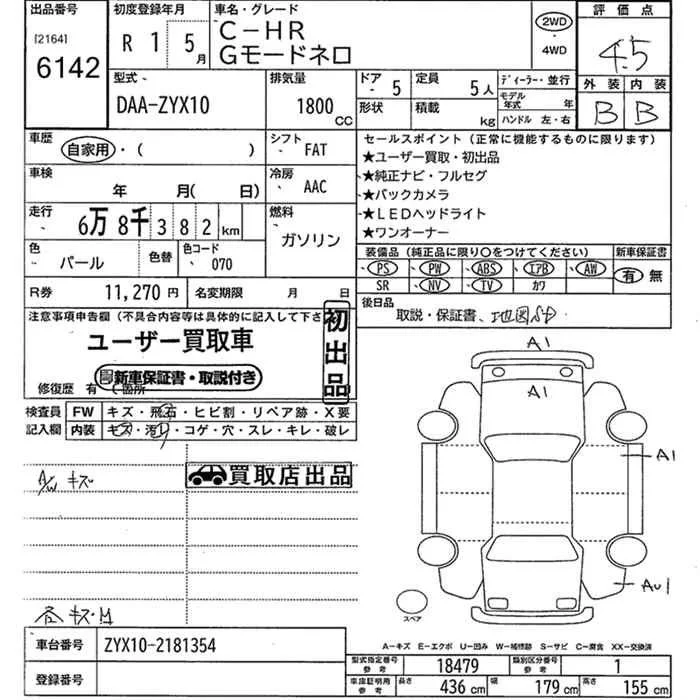 出品番号 初度登録年月 車名・グレード 2WD ・ 4WD 評価点
[2164]
6142 R 1 5月 C-HR
Gモードネロ 4.5
型式 排気量 ドア 5 定員 5人 ディーラー・並行 外装 内装
DAA-ZYX10 1800cc 形状 積載 kg モデル年式 年 B B
ハンドル 左・右
車歴 自家用・( ) シフト FAT セールスポイント(正常に機能するものに限ります)
★ユーザー買取・初出品
車検 年 月( 日) 冷房 AAC ★純正ナビ・フルセグ
★バックカメラ
走行 6万8千382km 燃料 ガソリン ★LEDヘッドライト
★ワンオーナー
色 パール 色替 色コード 070 装備品(純正品に限り○をつけてください) 新車保証書
PS PW ABS エアB AW 有 無
R券 11,270円 名変期限 月 日 SR NV TV カワ
注意事項申告欄(不具合内容等は具体的に記入して下さ 後日品
取説・保証書、地図SD
ユーザー買取車 初出品
新車保証書・取説付き
修復歴 有 ( 箇所
検査員 FW キズ・飛石・ヒビ割・リペア跡・X要
記入欄 内装 キズ・汚れ・コゲ・穴・スレ・キレ・破レ
買取店出品
A/W キズ
各キズ・H
A1
A1
A1
AU1
スペア
車台番号 ZYX10-2181354
A－キズ E－エクボ U－凹み W－補修跡 S－サビ C－腐食 XX－交換済
登録番号 型式指定番号 参考 18479 類別区分番号 参考 1
車庫証明用 参考 長さ 436cm 幅 179cm 高さ 155cm